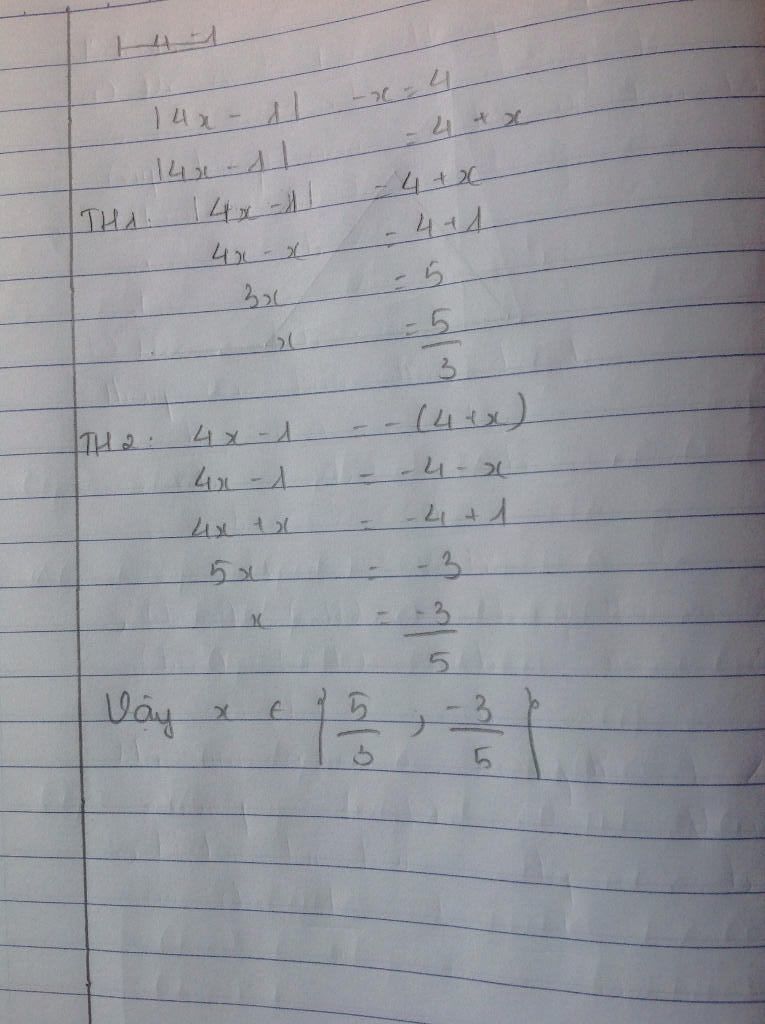 |4x - 1| - x = 4
|4x - 1| = 4 + x
TH1: |4x - 1| = 4 + x
4x - x = 4 + 1
3x = 5
x = 5/3
TH2: 4x - 1 = -(4 + x)
4x - 1 = -4 - x
4x + x = -4 + 1
5x = -3
x = -3/5
Vậy x ∈ {5/3 ; -3/5}